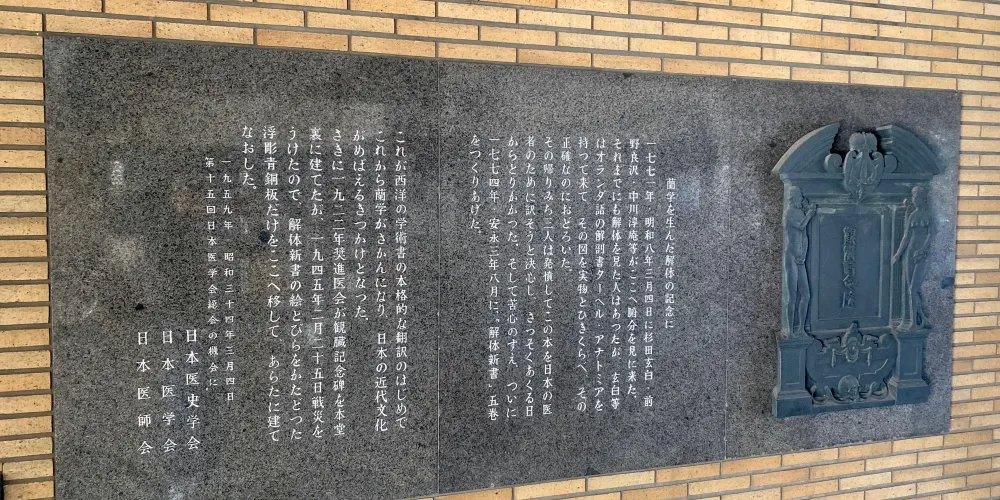 蘭学を生んだ解体の記念に
一七七一年・明和八年三月四日に杉田玄白・前
野良沢・中川淳庵等がここへ腑分を見に来た。
それまでにも解体を見た人はあつたが、玄白等
はオランダ語の解剖書ターヘル・アナトミアを
持つて来て、その図を実物とひきくらべ、その
正確なのにおどろいた。
その帰りみち三人は発憤してこの本を日本の医
者のために訳そうと決心し、さつそくあくる日
からとりかかつた。そして苦心のすえ、ついに
一七七四年・安永三年八月に、"解体新書"五巻
をつくりあげた。
これが西洋の学術書の本格的な翻訳のはじめで
これから蘭学がさかんになり、日本の近代文化
がめばえるきつかけとなつた。
さきに一九二二年奨進医会が観臓記念碑を本堂
裏に建てたが、一九四五年二月二十五日戦災を
うけたので、解体新書の絵とびらをかたどつた
浮彫青銅板だけをここへ移して、あらたに建て
なおした。
一九五九年 昭和三十四年三月四日
第十五回日本医学会総会の機会に
日本医史学会
日本医学会
日本医師会